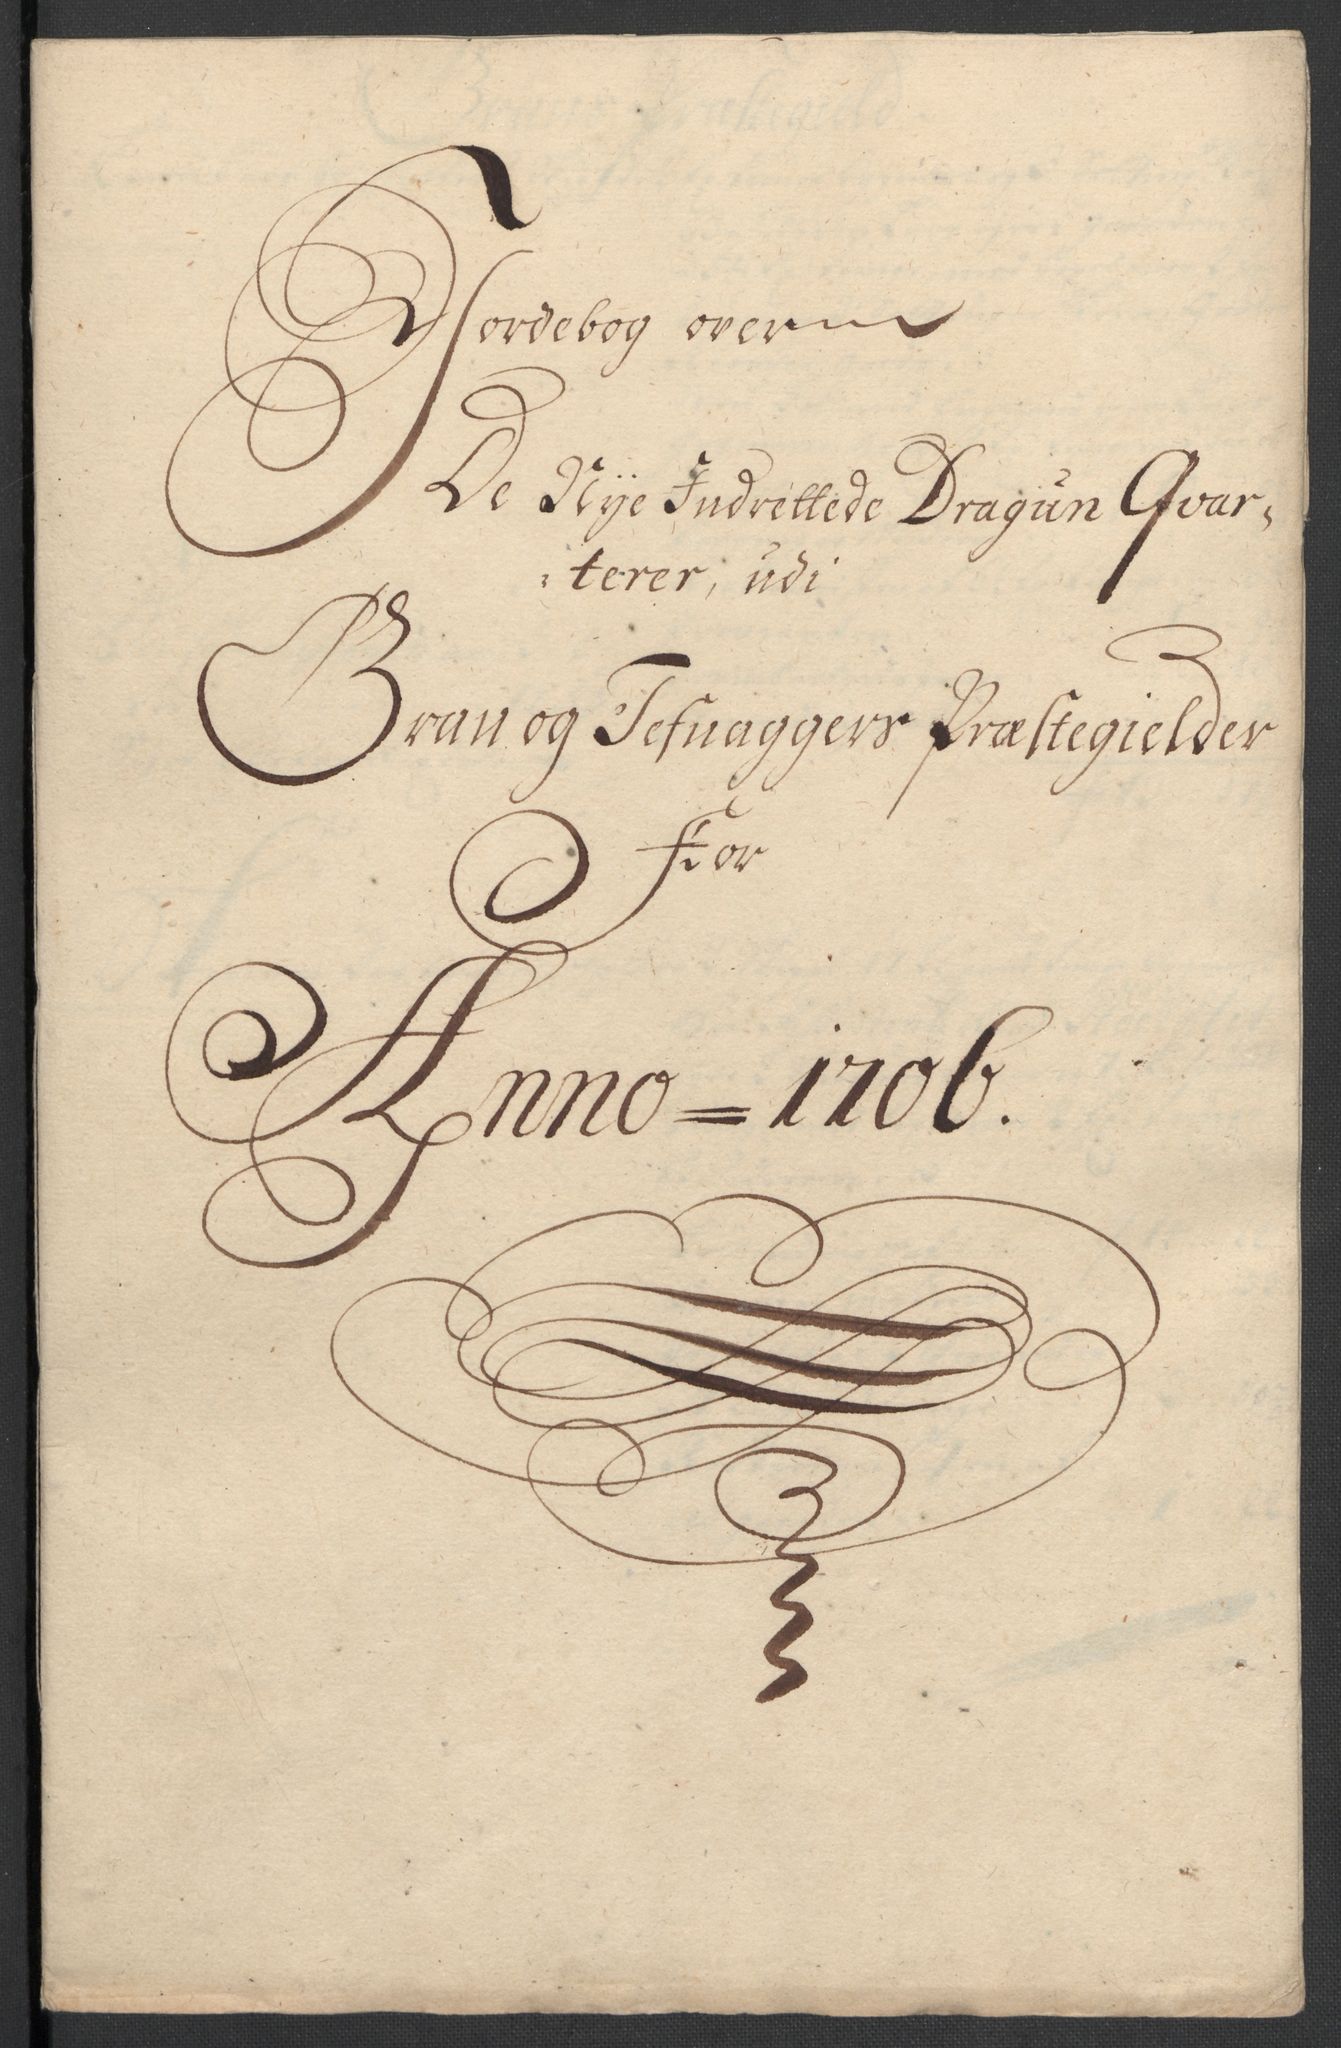 Jordebog over
De Nÿe Indrettede Dragun Qvar-
terer, udi
Gran og Jefnaggers Præstegielder
For
Anno = 1706.